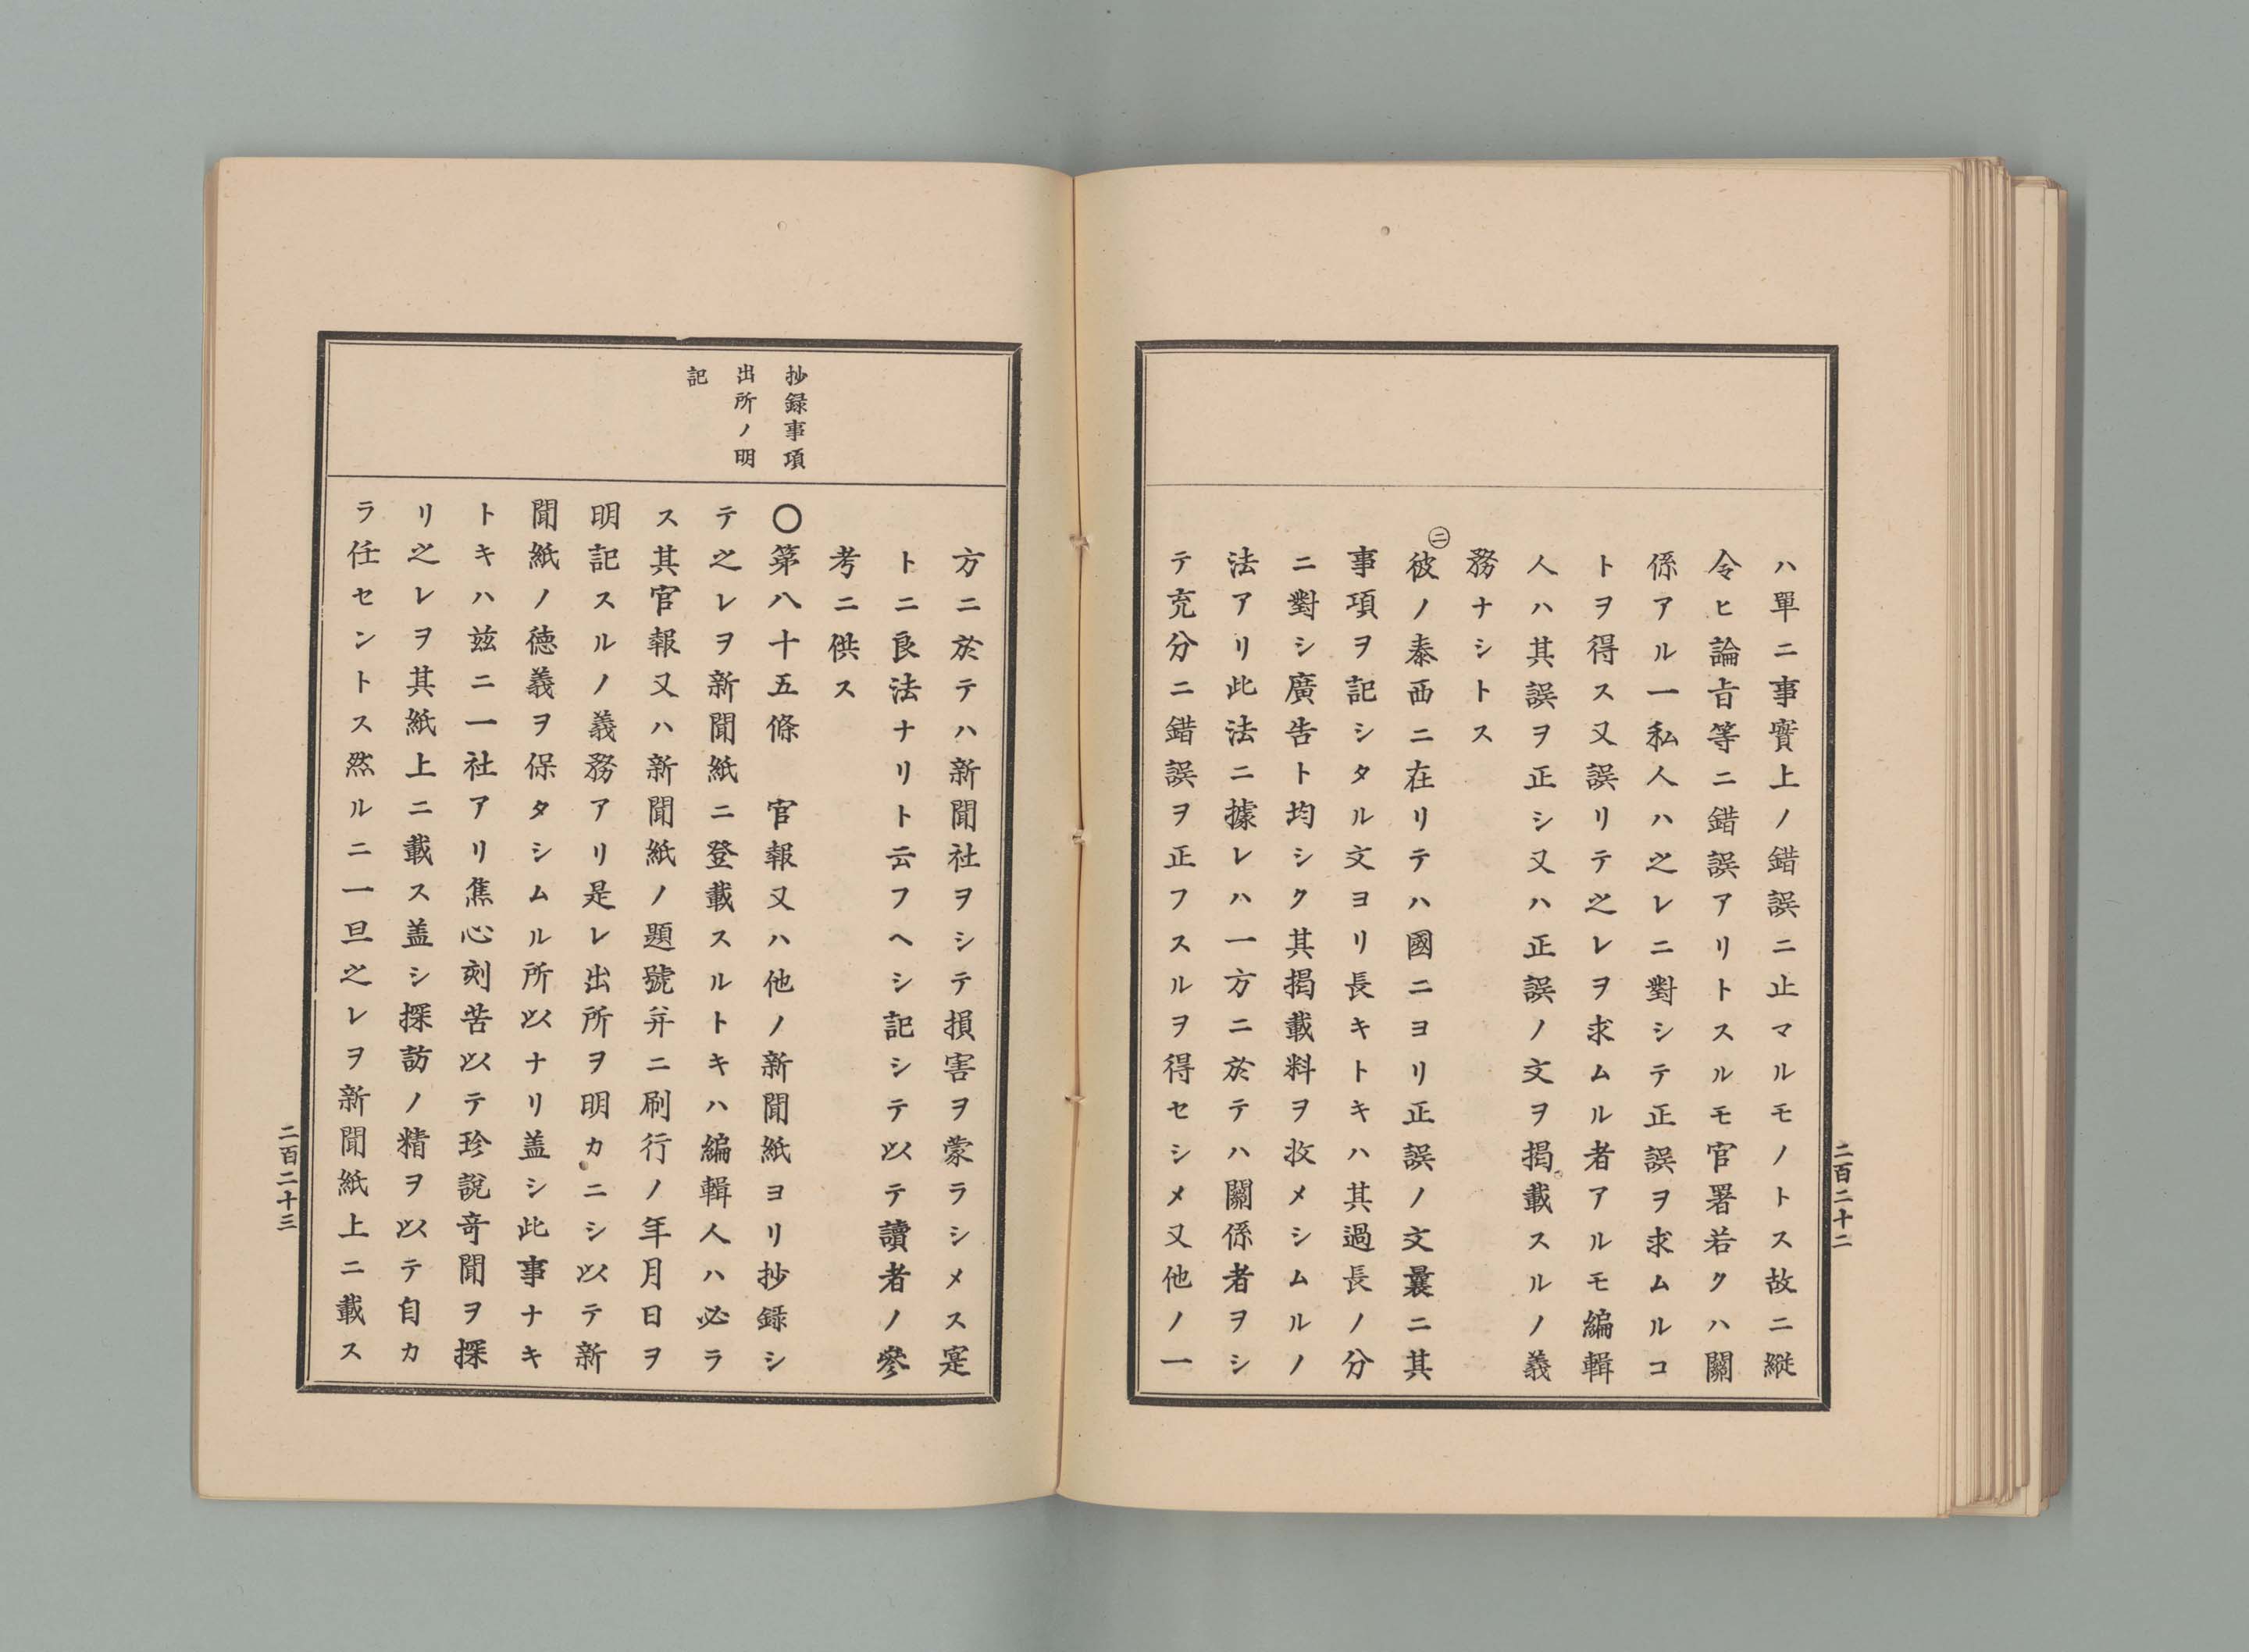 ハ單ニ事實上ノ錯誤ニ止マルモノトス故ニ縱
令ヒ論旨等ニ錯誤アリトスルモ官署若クハ關
係アル一私人ハ之レニ對シテ正誤ヲ求ムルコ
トヲ得ス又誤リテ之レヲ求ムル者アルモ編輯
人ハ其誤ヲ正シ又ハ正誤ノ文ヲ揭載スルノ義
務ナシトス
㊁彼ノ泰西ニ在リテハ國ニヨリ正誤ノ文曩ニ其
事項ヲ記シタル文ヨリ長キトキハ其過長ノ分
ニ對シ廣告ト均シク其揭載料ヲ收メシムルノ
法アリ此法ニ據レハ一方ニ於テハ關係者ヲシ
テ充分ニ錯誤ヲ正フスルヲ得セシメ又他ノ一
二百二十二
方ニ於テハ新聞社ヲシテ損害ヲ蒙ラシメス寔
トニ良法ナリト云フヘシ記シテ以テ讀者ノ參
考ニ供ス
抄録事項
出所ノ明
記
〇第八十五條　官報又ハ他ノ新聞紙ヨリ抄録シ
テ之レヲ新聞紙ニ登載スルトキハ編輯人ハ必ラ
ス其官報又ハ新聞紙ノ題號并ニ刷行ノ年月日ヲ
明記スルノ義務アリ是レ出所ヲ明カニシ以テ新
聞紙ノ徳義ヲ保タシムル所以ナリ盖シ此事ナキ
トキハ茲ニ一社アリ焦心刻苦以テ珍説奇聞ヲ探
リ之レヲ其紙上ニ載ス盖シ探訪ノ精ヲ以テ自カ
ラ任セントス然ルニ一旦之レヲ新聞紙上ニ載ス
二百二十三